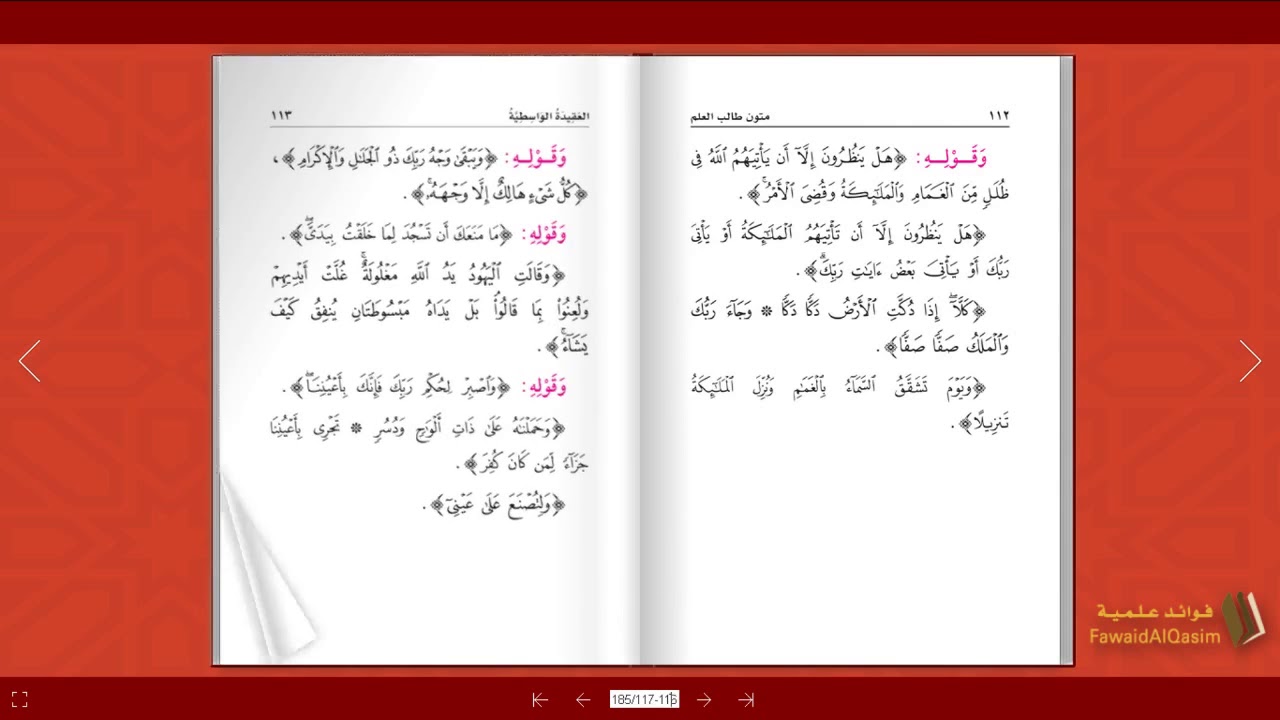 ١١٢
متون طالب العلم
وَقَــوْلِــهِ: ﴿هَلْ يَنظُرُونَ إِلَّآ أَن يَأْتِيَهُمُ ٱللَّهُ فِى
ظُلَلٍ مِّنَ ٱلْغَمَامِ وَٱلْمَلَٰٓئِكَةُ وَقُضِىَ ٱلْأَمْرُ ۚ﴾.
﴿هَلْ يَنظُرُونَ إِلَّآ أَن تَأْتِيَهُمُ ٱلْمَلَٰٓئِكَةُ أَوْ يَأْتِىَ
رَبُّكَ أَوْ يَأْتِىَ بَعْضُ ءَايَٰتِ رَبِّكَ ۗ﴾.
﴿كَلَّآ ۖ إِذَا دُكَّتِ ٱلْأَرْضُ دَكًّا دَكًّا * وَجَآءَ رَبُّكَ
وَٱلْمَلَكُ صَفًّا صَفًّا﴾.
﴿وَيَوْمَ تَشَقَّقُ ٱلسَّمَآءُ بِٱلْغَمَٰمِ وَنُزِّلَ ٱلْمَلَٰٓئِكَةُ
تَنزِيلًا﴾.
العَقِيدَةُ الوَاسِطِيَّةُ
١١٣
وَقَــوْلِــهِ: ﴿وَيَبْقَىٰ وَجْهُ رَبِّكَ ذُو ٱلْجَلَٰلِ وَٱلْإِكْرَامِ﴾،
﴿كُلُّ شَىْءٍ هَالِكٌ إِلَّا وَجْهَهُۥ ۚ﴾.
وَقَوْلِهِ: ﴿مَا مَنَعَكَ أَن تَسْجُدَ لِمَا خَلَقْتُ بِيَدَىَّ ۖ﴾.
﴿وَقَالَتِ ٱلْيَهُودُ يَدُ ٱللَّهِ مَغْلُولَةٌ ۚ غُلَّتْ أَيْدِيهِمْ
وَلُعِنُوا۟ بِمَا قَالُوا۟ ۘ بَلْ يَدَاهُ مَبْسُوطَتَانِ يُنفِقُ كَيْفَ
يَشَآءُ ۚ﴾.
وَقَوْلِهِ: ﴿وَٱصْبِرْ لِحُكْمِ رَبِّكَ فَإِنَّكَ بِأَعْيُنِنَا ۖ﴾.
﴿وَحَمَلْنَٰهُ عَلَىٰ ذَاتِ أَلْوَٰحٍ وَدُسُرٍ * تَجْرِى بِأَعْيُنِنَا
جَزَآءً لِّمَن كَانَ كُفِرَ﴾.
﴿وَلِتُصْنَعَ عَلَىٰ عَيْنِىٓ﴾.
فوائد علمية
FawaidAlQasim
185/117-116